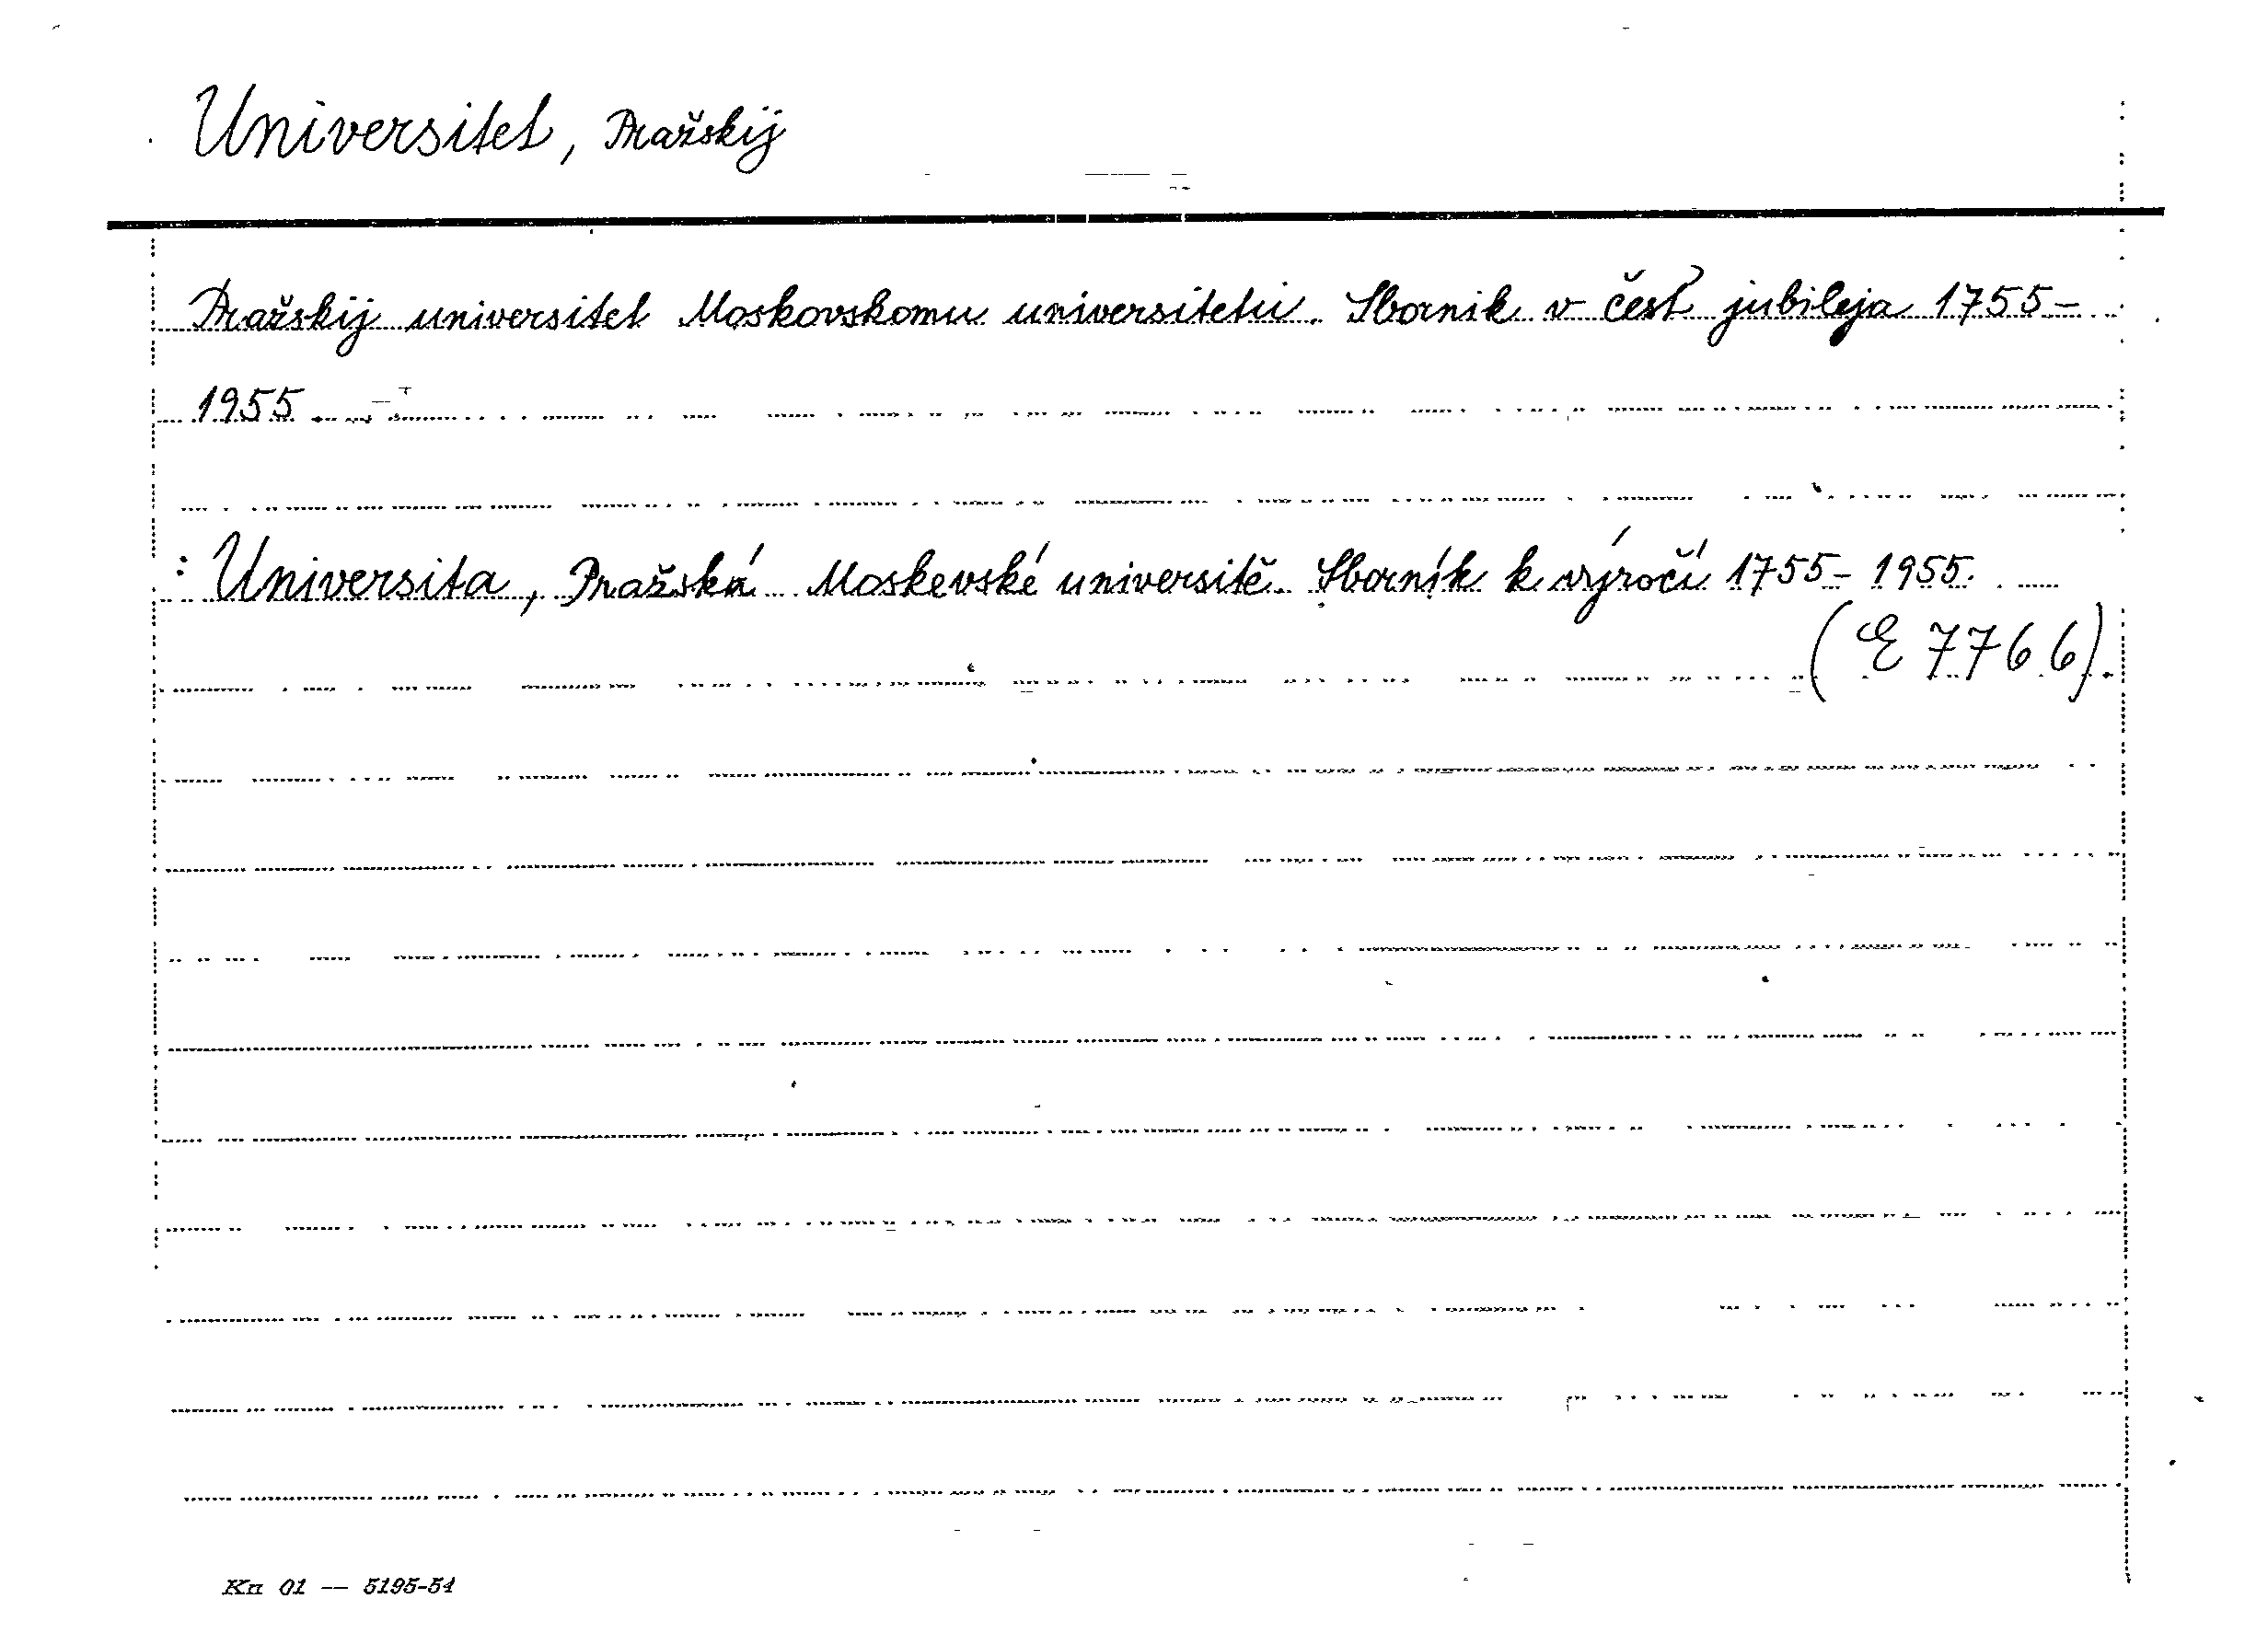 Universitet, Pražskij
Pražskij universitet Moskovskomu universitetu. Sbornik v čest jubileja 1755-
1955
: Universita, Pražská Moskevské universitě. Sborník k výročí 1755-1955.
(E 7766).
Kn 01 — 5195-54